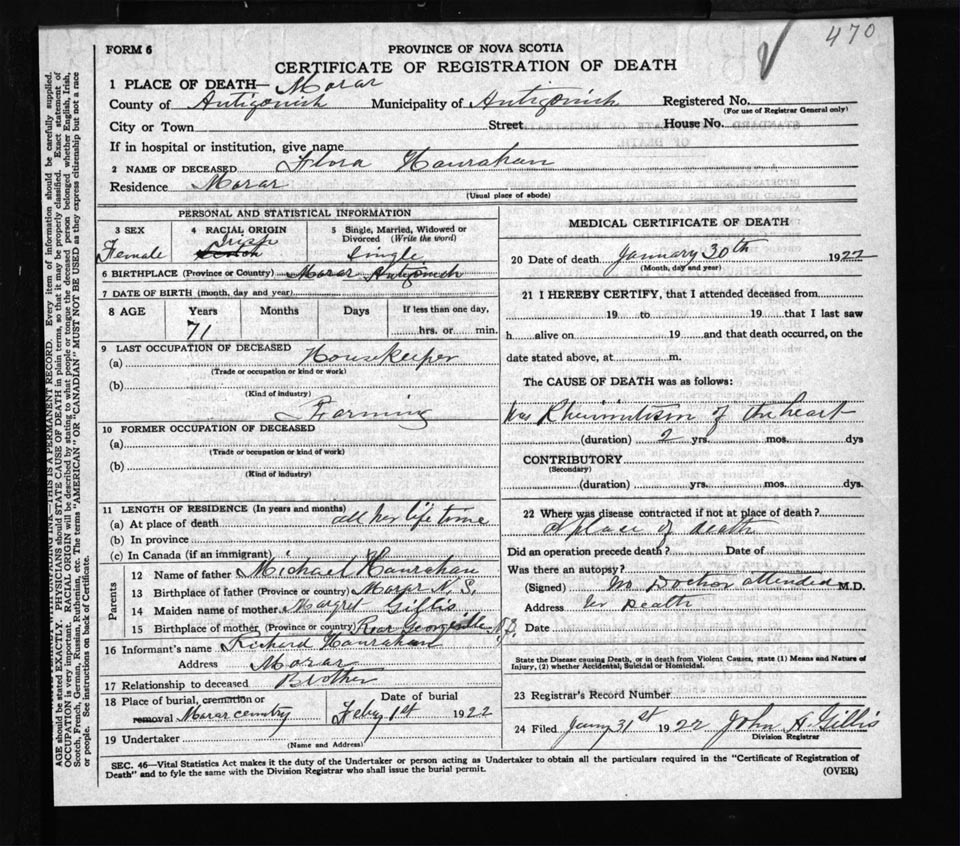 470
FORM 6
PROVINCE OF NOVA SCOTIA
CERTIFICATE OF REGISTRATION OF DEATH
1 PLACE OF DEATH— Morar
County of Antigonish Municipality of Antigonish Registered No.
(For use of Registrar General only)
City or Town Street House No.
If in hospital or institution, give name
2 NAME OF DECEASED Flora Hanrahan
Residence Morar
(Usual place of abode)
PERSONAL AND STATISTICAL INFORMATION
3 SEX 4 RACIAL ORIGIN 5 Single, Married, Widowed or
Divorced (Write the word)
Irish
Female Single
6 BIRTHPLACE (Province or Country) Morar Antigonish
7 DATE OF BIRTH (month, day and year)
8 AGE Years Months Days If less than one day,
71 hrs. or min.
9 LAST OCCUPATION OF DECEASED
(a) Housekeeper
(Trade or occupation or kind or work)
(b)
(Kind of industry)
Farming
10 FORMER OCCUPATION OF DECEASED
(a)
(Trade or occupation or kind of work)
(b)
(Kind of industry)
11 LENGTH OF RESIDENCE (In years and months)
(a) At place of death all her life time
(b) In province
(c) In Canada (if an immigrant)
Parents
12 Name of father Michael Hanrahan
13 Birthplace of father (Province or country) Morar N. S.
14 Maiden name of mother Margret Gillis
15 Birthplace of mother (Province or country) Rear Georgville
16 Informant's name Richard Hanrahan
Address Morar
17 Relationship to deceased Brother
18 Place of burial, cremation or Date of burial
removal Morar cemtry Feby 1st 1922
19 Undertaker
(Name and Address)
MEDICAL CERTIFICATE OF DEATH
20 Date of death January 30th 1922
(Month, day and year)
21 I HEREBY CERTIFY, that I attended deceased from
19 to 19 that I last saw
h alive on 19 and that death occurred, on the
date stated above, at m.
The CAUSE OF DEATH was as follows:
was Rheimitism of the heart
(duration) 2 yrs. mos. dys
CONTRIBUTORY
(Secondary)
(duration) yrs. mos. dys.
22 Where was disease contracted if not at place of death?
place of death
Did an operation precede death? Date of
Was there an autopsy?
(Signed) no Docher attended M.D.
Address Death
Date
State the Disease causing Death, or in death from Violent Causes, state (1) Means and Nature of
Injury, (2) whether Accidental, Suicidal or Homicidal.
23 Registrar's Record Number
24 Filed Jany 31st 1922 John A Gillis
Division Registrar
SEC. 46—Vital Statistics Act makes it the duty of the Undertaker or person acting as Undertaker to obtain all the particulars required in the "Certificate of Registration of
Death" and to fyle the same with the Division Registrar who shall issue the burial permit.
(OVER)
THIS IS A PERMANENT RECORD. Every item of information should be carefully supplied.
AGE should be stated EXACTLY. PHYSICIANS should STATE CAUSE OF DEATH in plain terms, so that it may be properly classified. Exact statement of
OCCUPATION is very important. RACIAL ORIGIN will be described by stating to what people or tongue the deceased person belonged whether English, Irish,
Scotch, French, German, Russian, Ruthenian, etc. The terms "AMERICAN" OR "CANADIAN" MUST NOT BE USED as they express citizenship but not a race
or people. See instructions on back of Certificate.